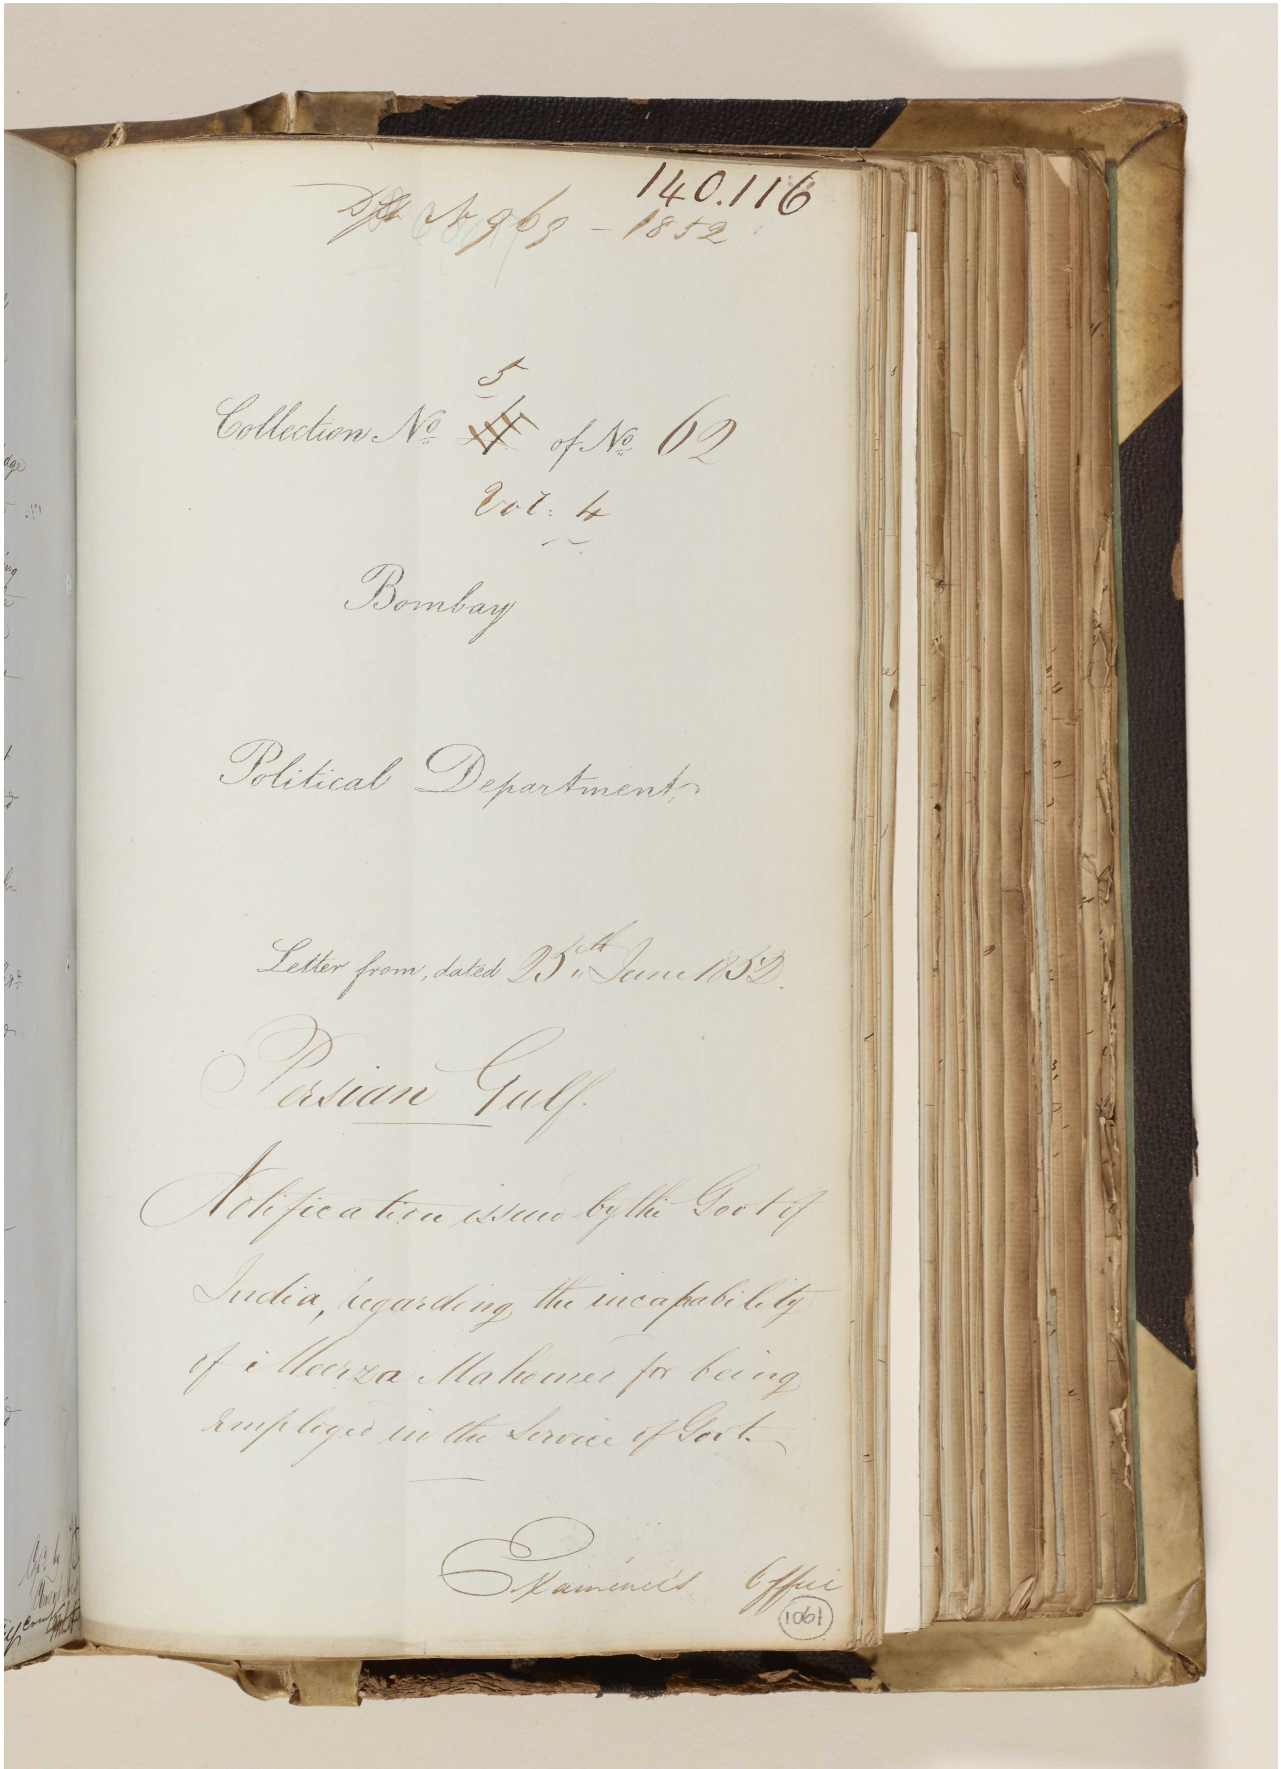 140.116
Dft No 969 - 1852
5
Collection No of No 62
Vol: 4
Bombay
Political Department,
Letter from, dated 25th June 1852.
Persian Gulf.
Notification issued by the Govt of
India, regarding the incapability
of Meerza Mahomed for being
employed in the Service of Govt.
Examiner's Office
1061